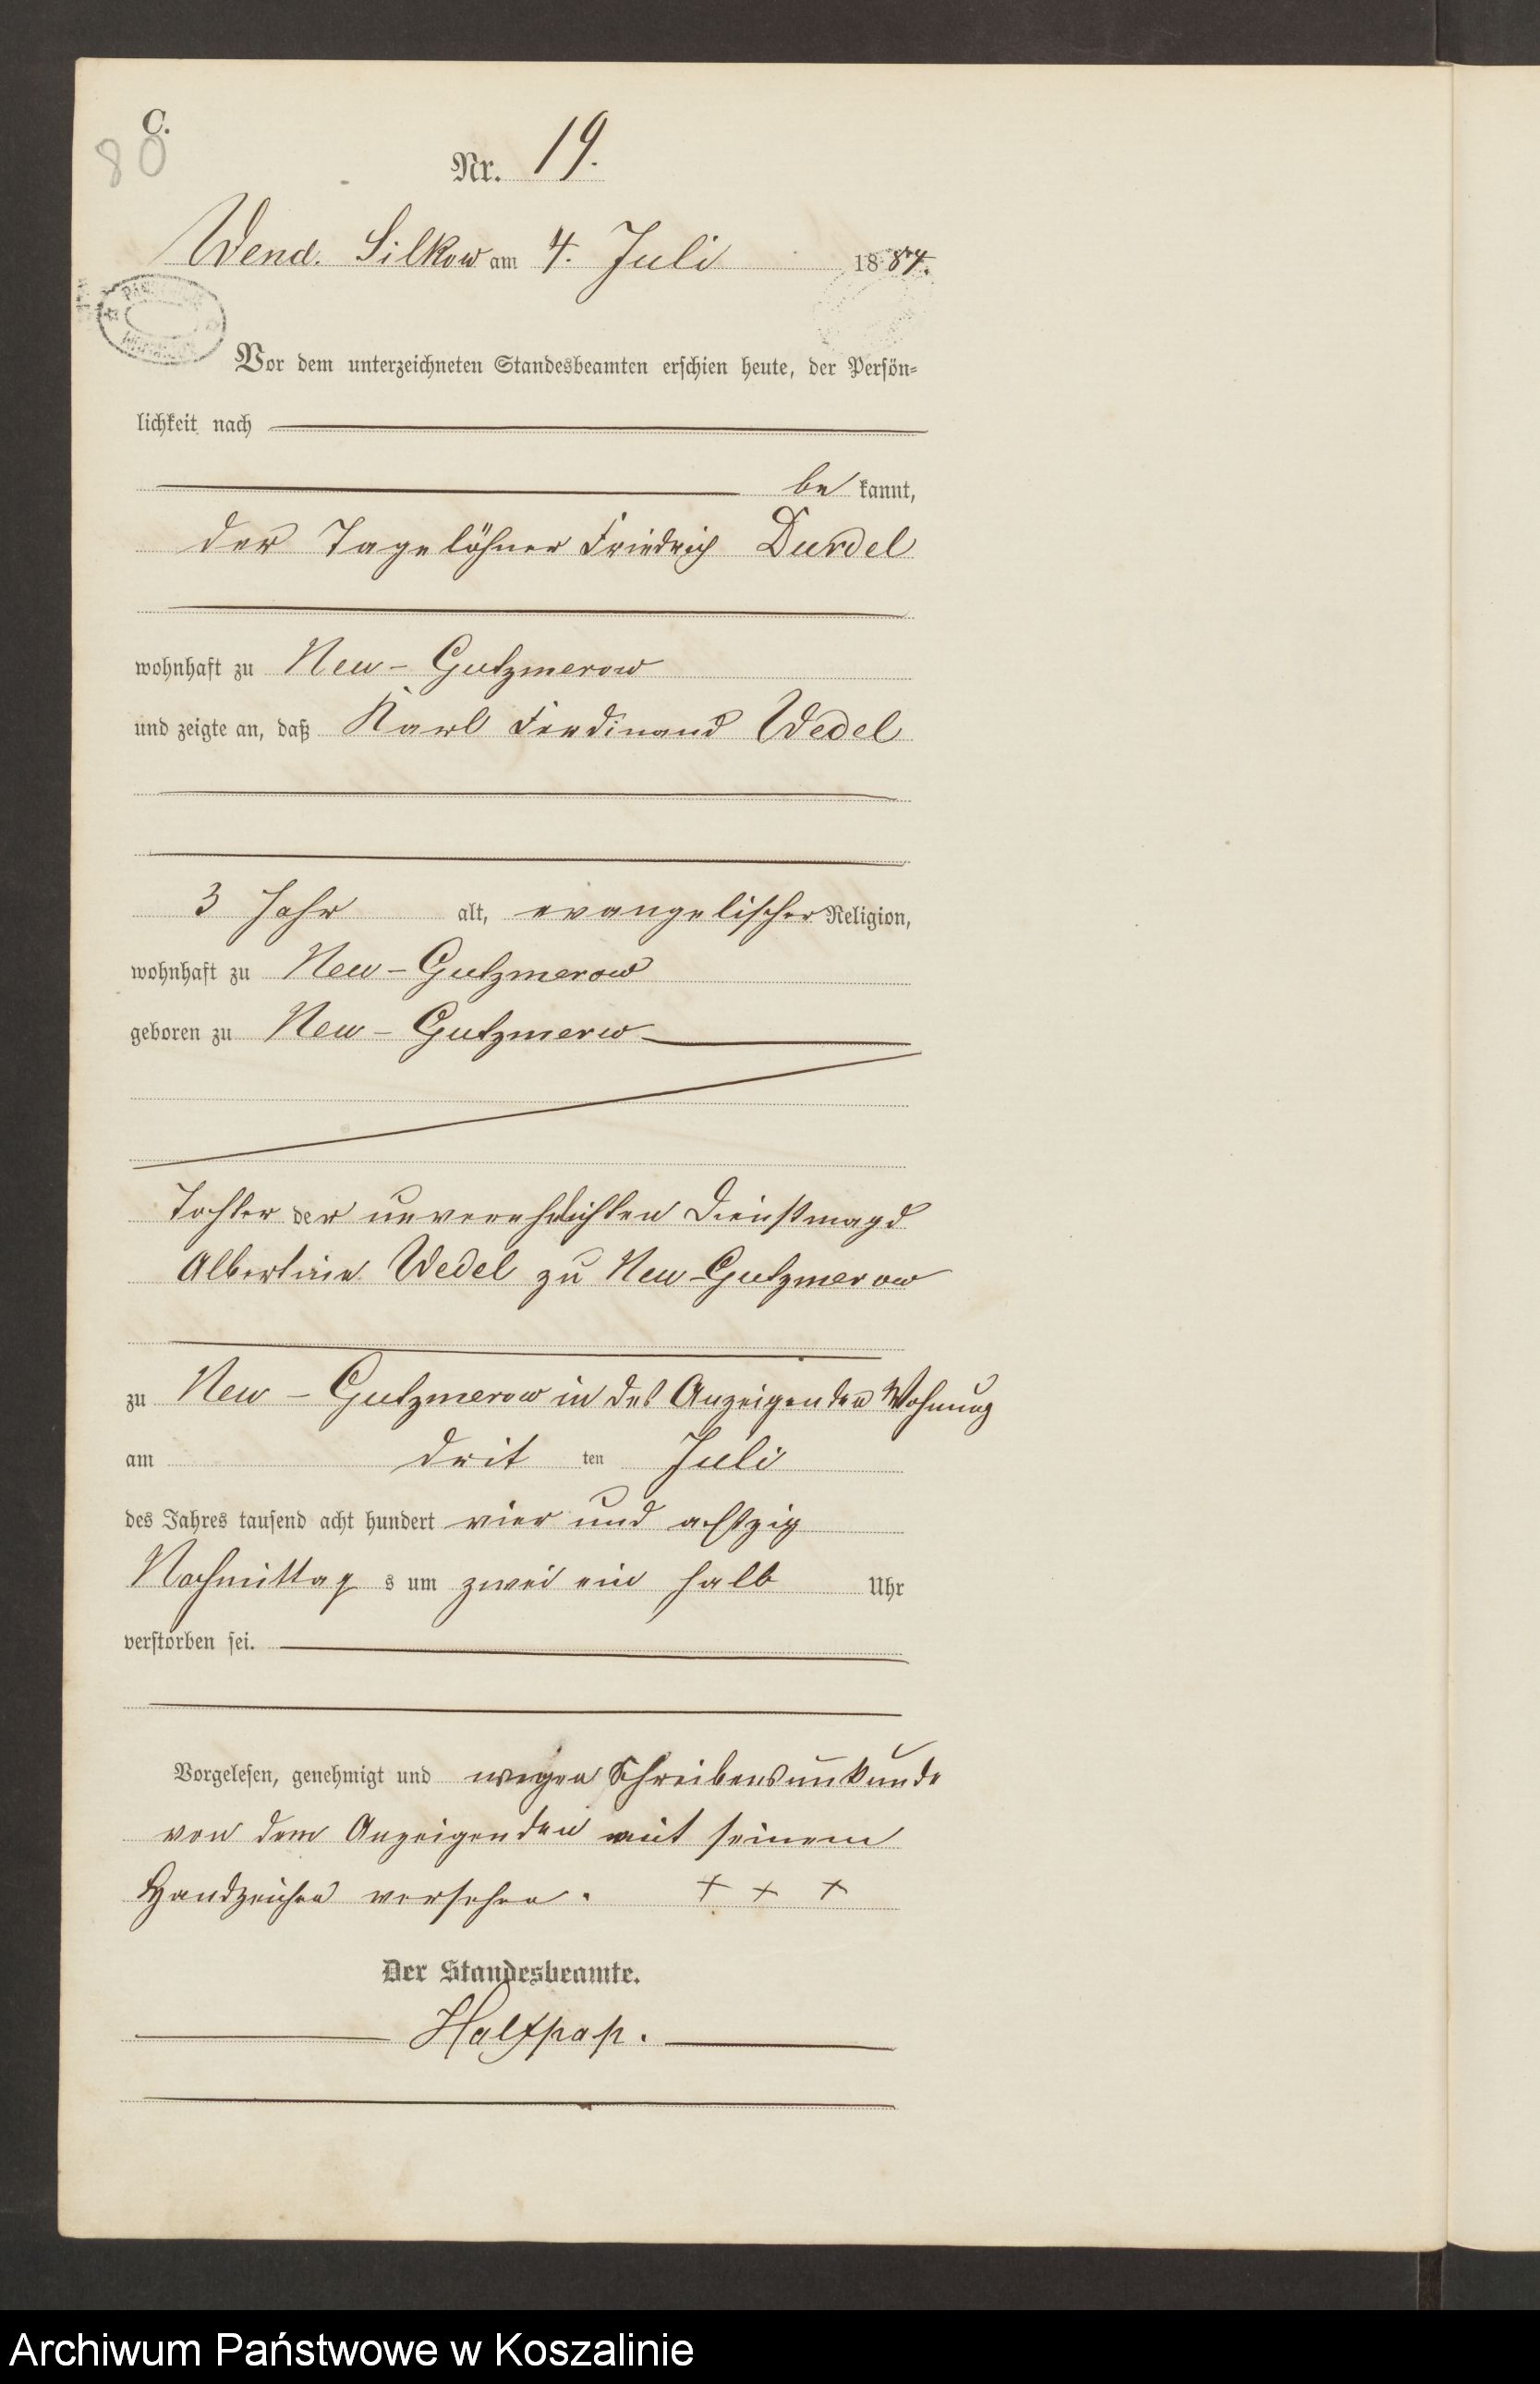 C.
80
Nr. 19.
Wend. Silkow am 4. Juli 1884.
Vor dem unterzeichneten Standesbeamten erschien heute, der Persön-
lichkeit nach
be kannt,
der Tagelöhner Friedrich Durdel
wohnhaft zu Neu-Gutzmerow
und zeigte an, daß Karl Ferdinand Wedel
3 Jahr alt, evangelischer Religion,
wohnhaft zu Neu-Gutzmerow
geboren zu Neu-Gutzmerw
Tochter der unverehelichten Dienstmagd
Albertine Wedel zu Neu-Gutzmerow
zu Neu-Gutzmerow in des Anzeigenden Wohnung
am drit ten Juli
des Jahres tausend acht hundert vier und achtzig
Nachmittag s um zwei ein halb Uhr
verstorben sei.
Vorgelesen, genehmigt und wegen Schreibensunkunde
von dem Anzeigenden mit seinem
Handzeichen versehen. + + +
Der Standesbeamte.
Halfpap.
Archiwum Państwowe w Koszalinie